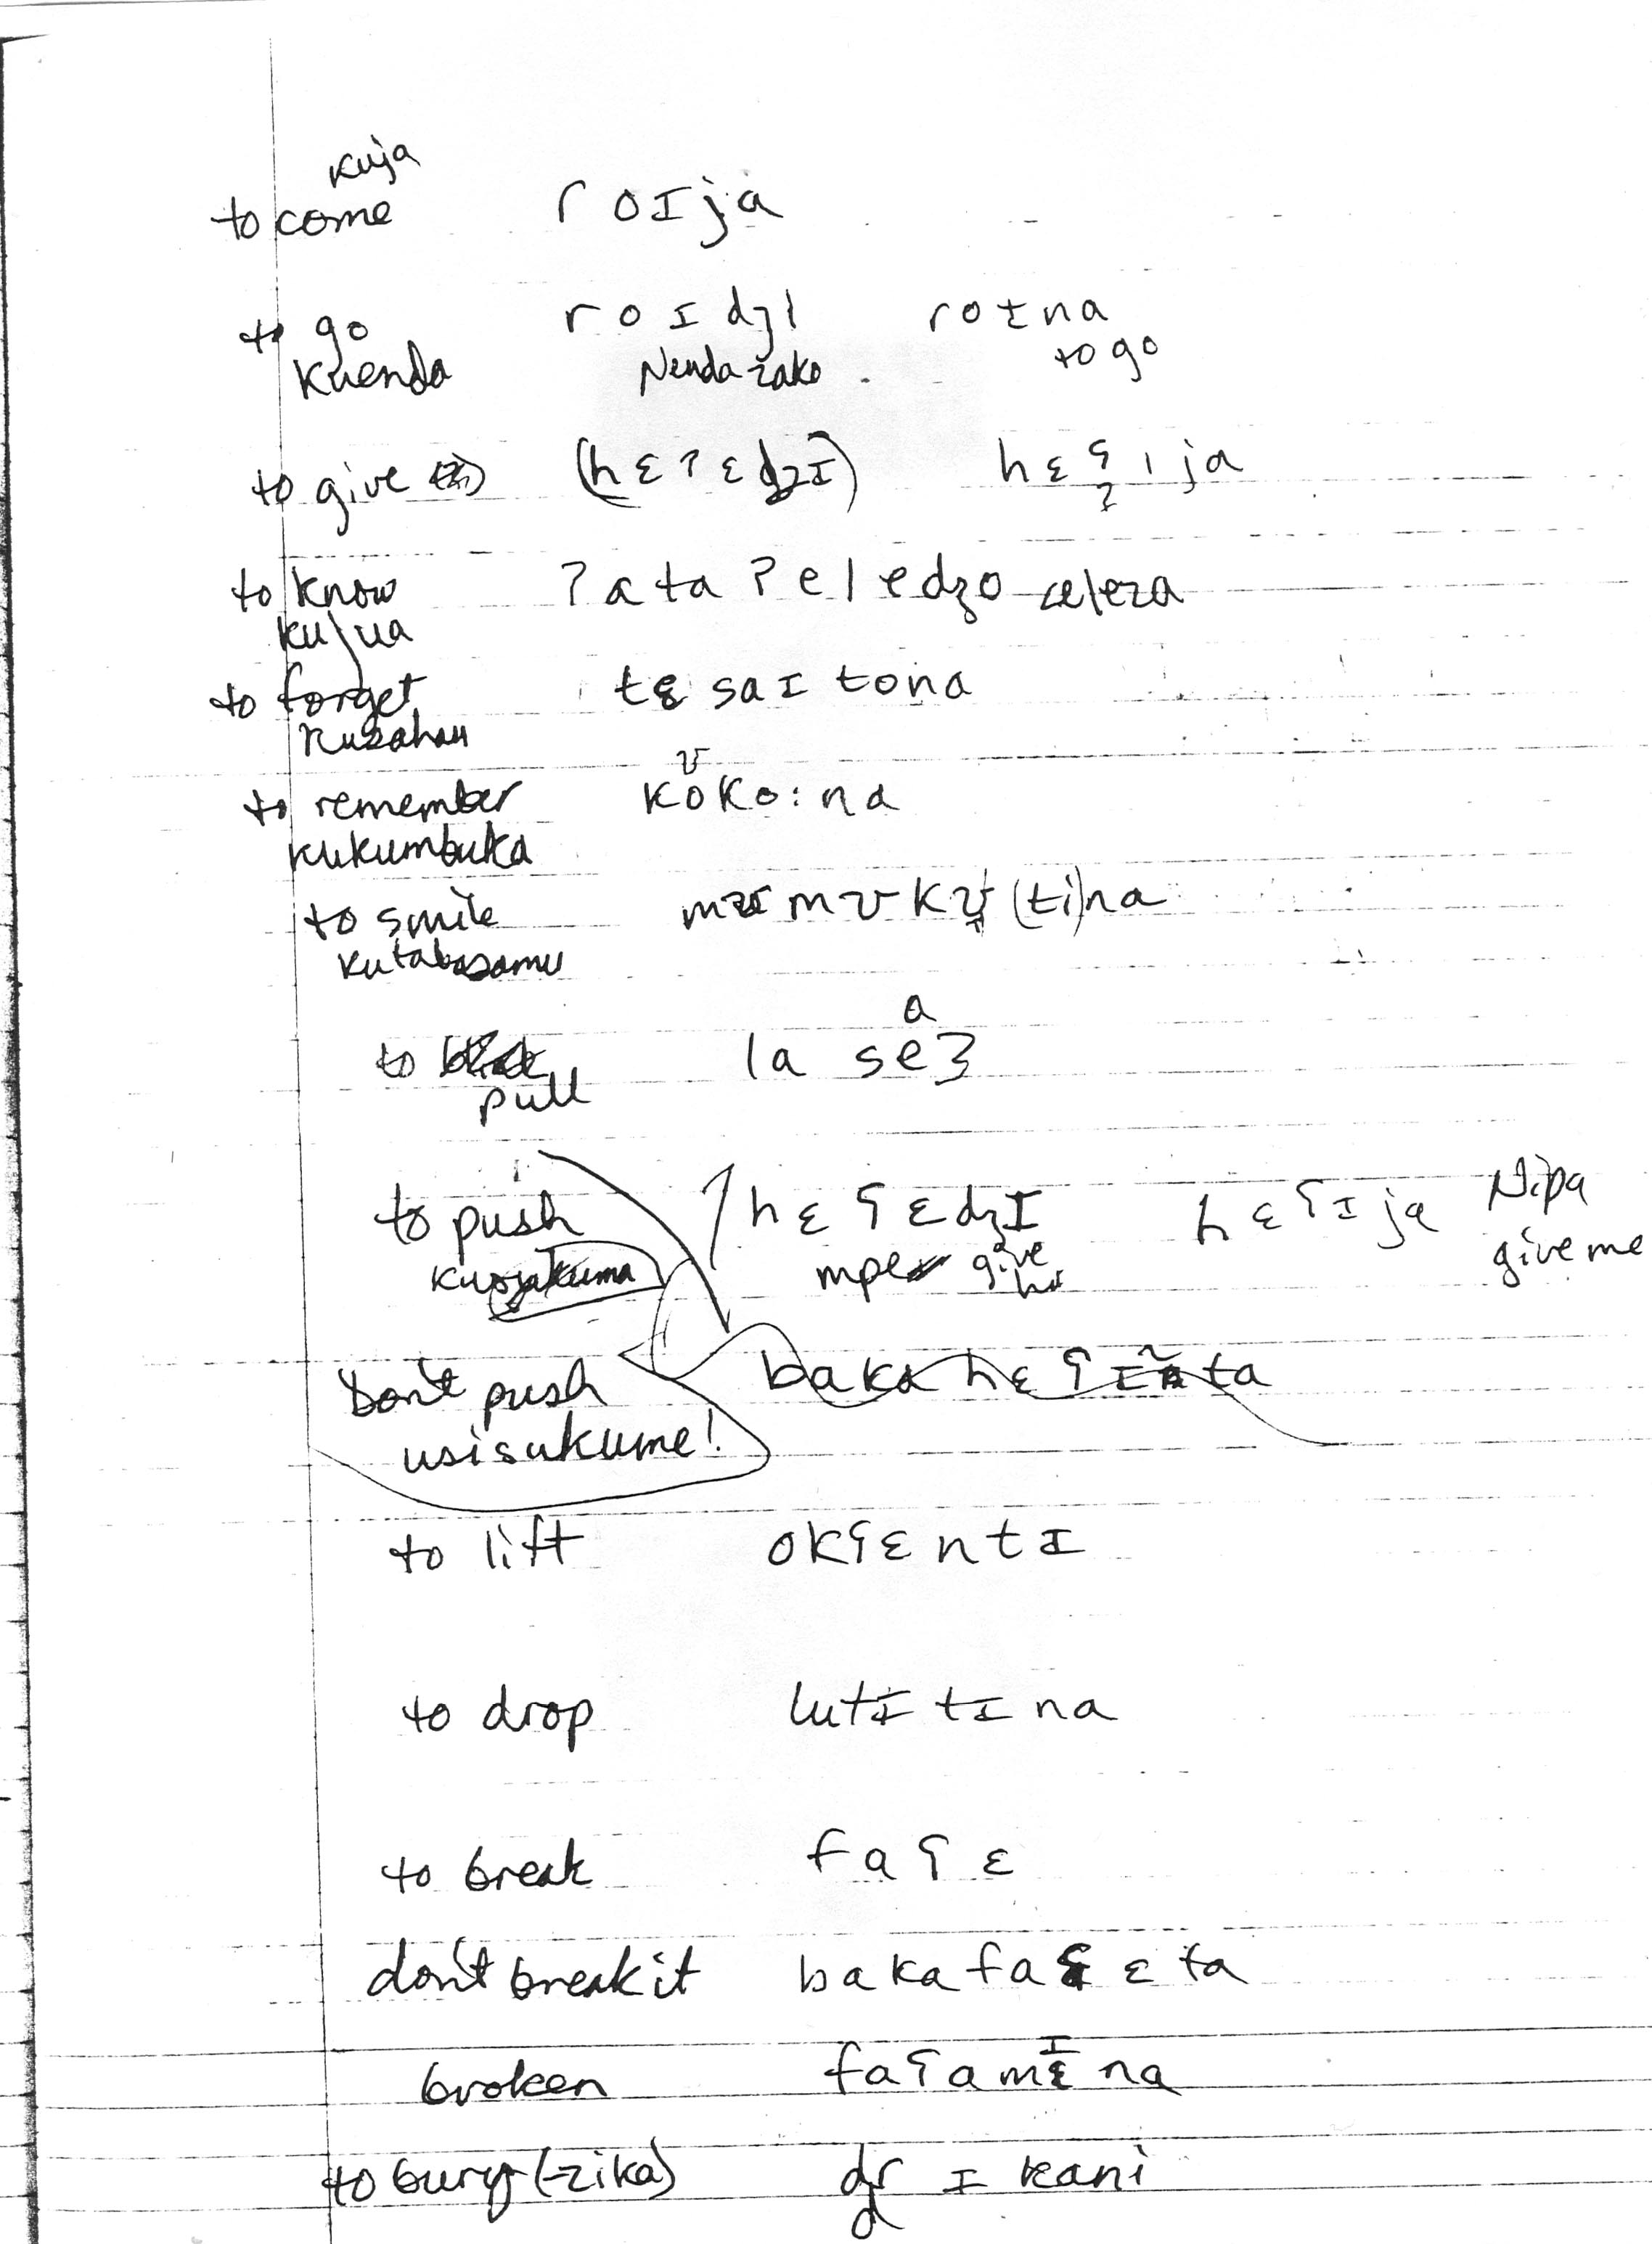 kuja
to come roɪja
to go roɪdʒı roɪna
Kuenda Nenda zako to go
to give (hɛʔɛdʒɪ) hɛʕıja
ʔ
to know ʔataʔeledzo celeza
kujua
to forget tɛ saɪ tona
Kusahau
ʊ
to remember koko:na
kukumbuka
to smile mʊmʊkʊ(ti)na
kutabasamu
a
to la seʒ
pull
to push hɛʕɛdʒɪ hɛʕɪja Nipa
mpe give give me
Don't push baka hɛʕɪta
usisukume!
to lift okʕɛntɪ
to drop lutɪtɪna
to break faʕɛ
don't break it bakafaʕɛta
ɪ
broken faʕamɛna
to bury (-zika) dʒɪkani
d